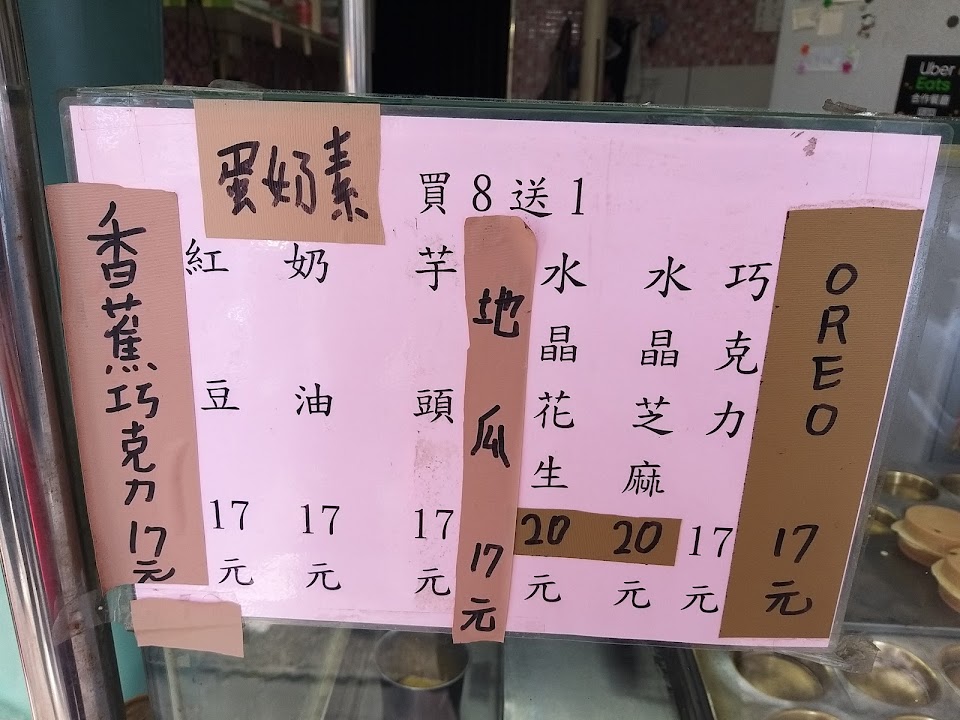 Uber
Eats
合作餐廳
蛋奶素
買8送1
香蕉巧克力17元
紅豆17元
奶油17元
芋頭17元
地瓜17元
水晶花生20元
水晶芝麻20元
巧克力17元
OREO17元